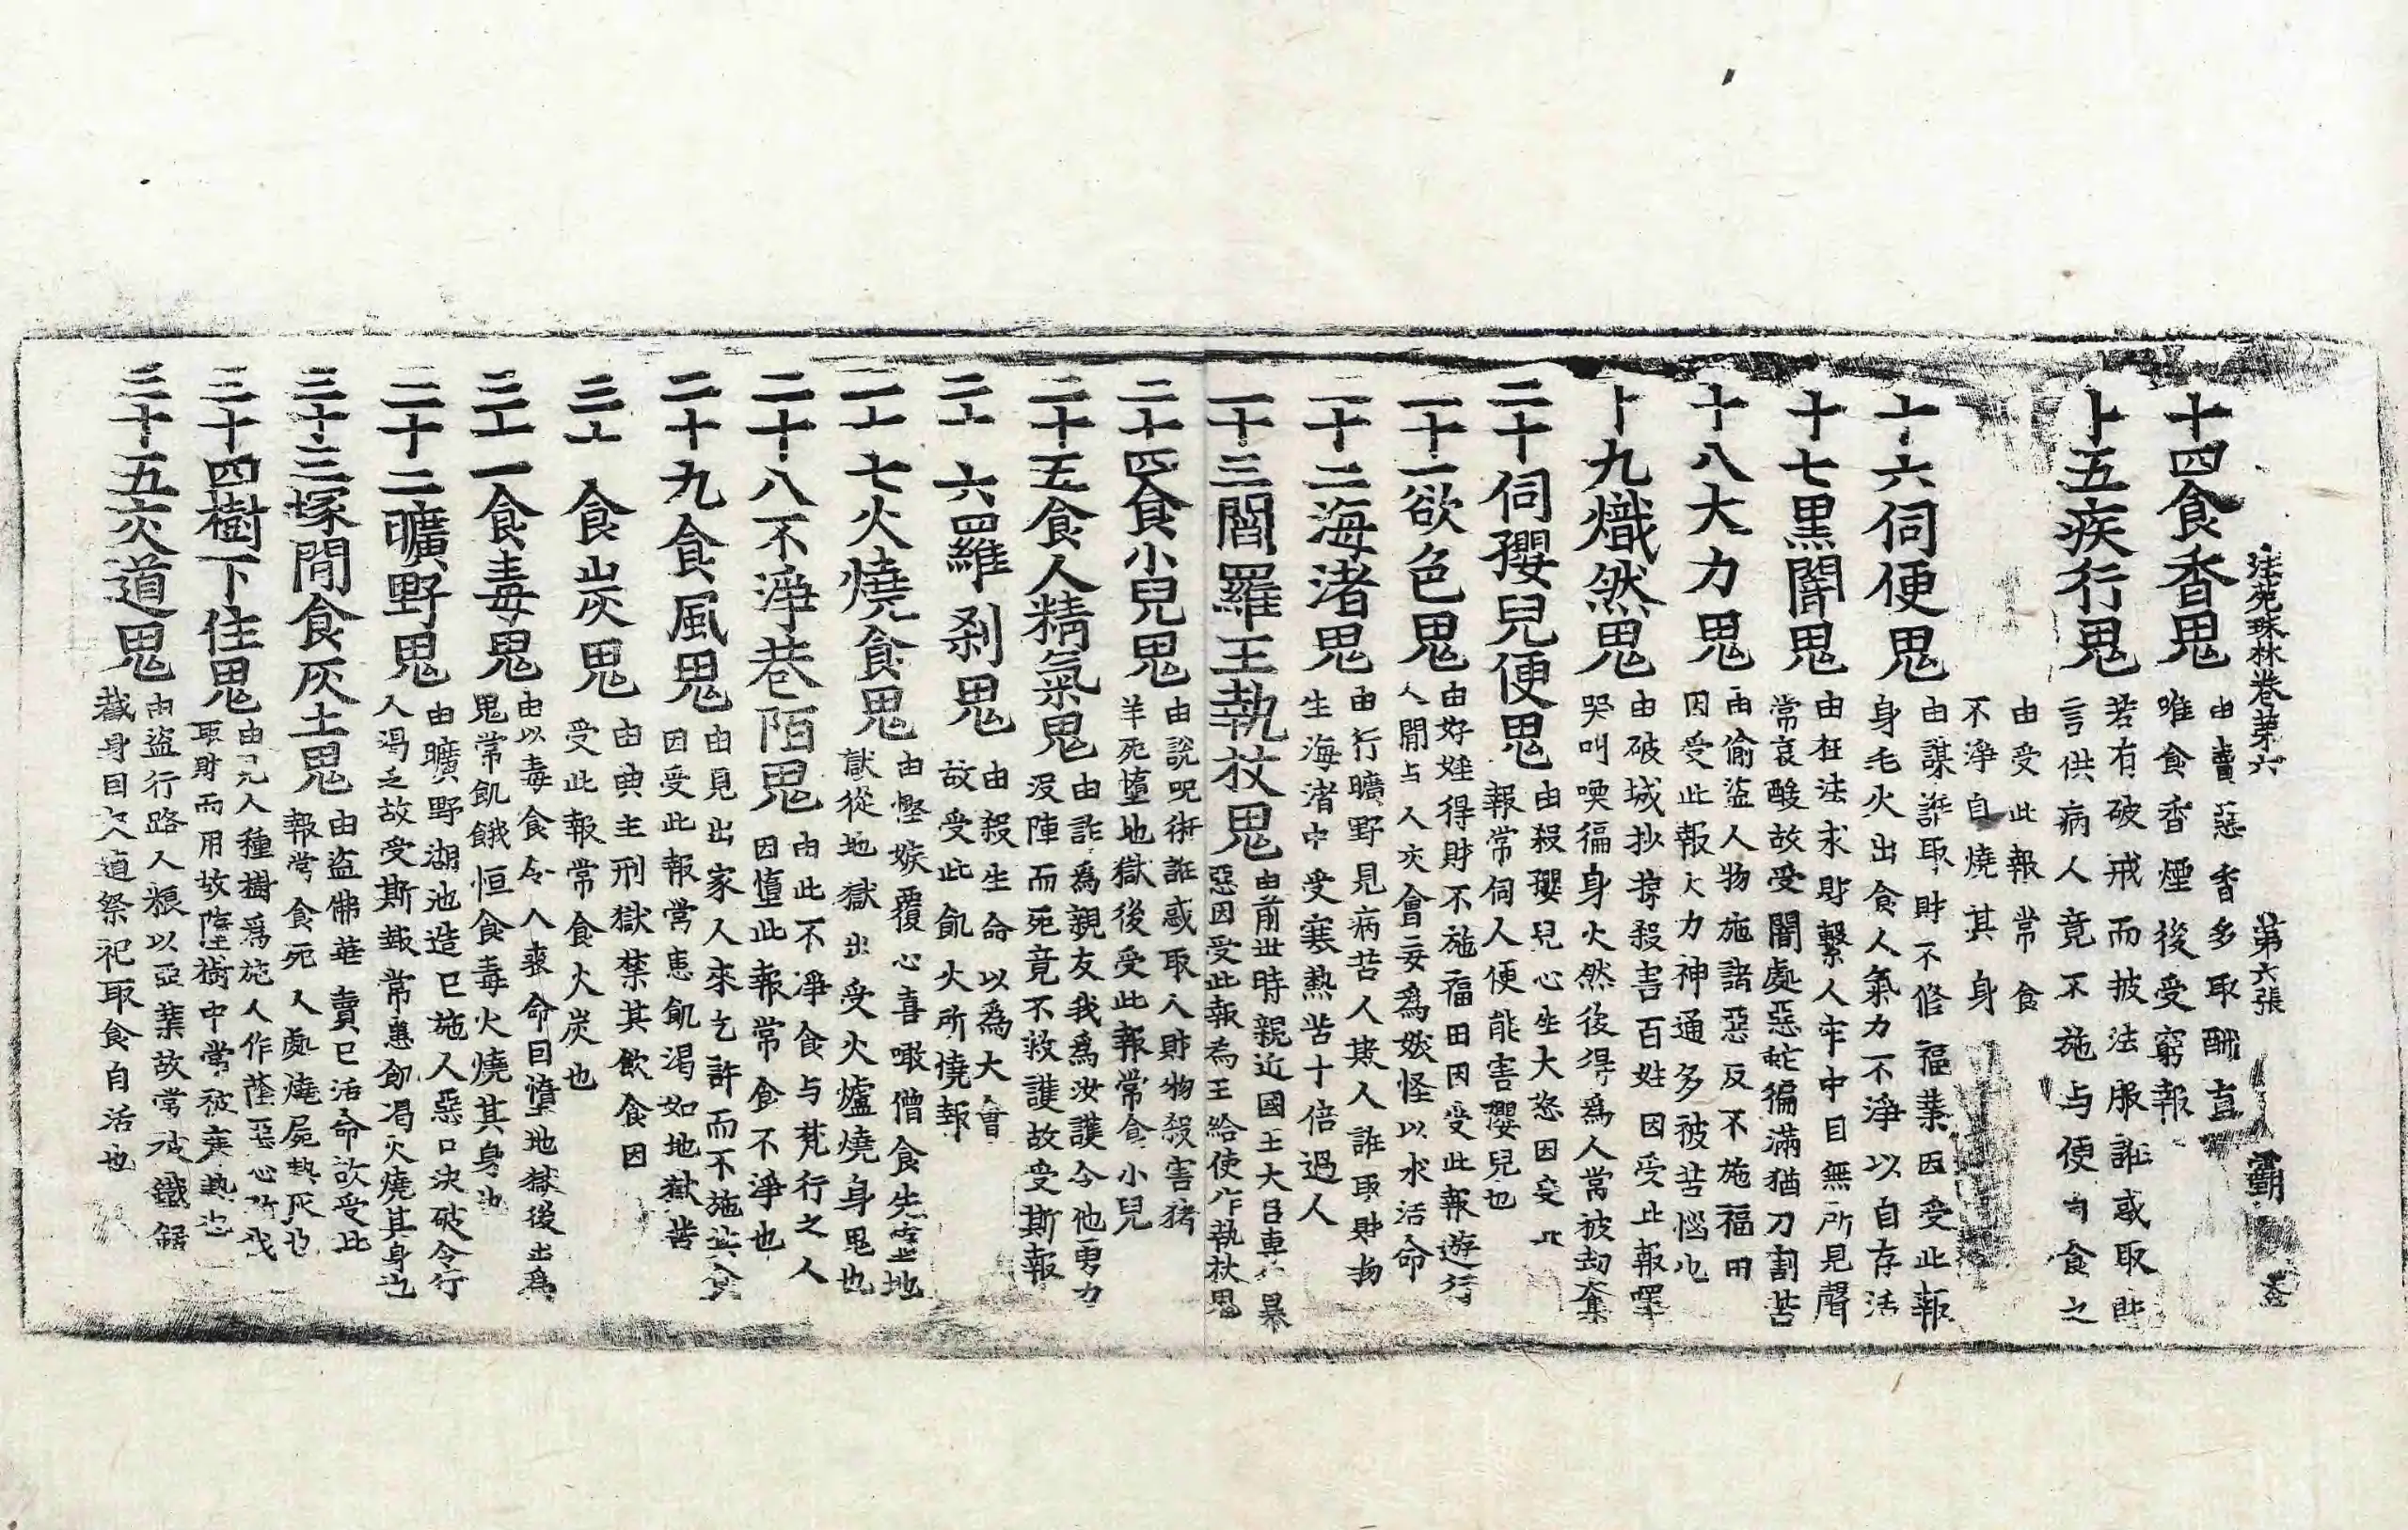 法苑珠林卷第六 第六張 霸
十四食香鬼 由賣惡香多取酬直
唯食香煙後受窮報
十五疾行鬼 若有破戒而披法服誑惑取財
言供病人竟不施与便自食之
由受此報常食
不淨自燒其身
十六伺便鬼 由謀誑取財不修福業因受此報
身毛火出食人氣力不淨以自存活
十七黑闇鬼 由枉法求財繫人牢中目無所見聲
常哀酸故受闇處惡蛇徧滿猶刀割苦
十八大力鬼 由偷盜人物施諸惡反不施福田
因受此報大力神通多被苦惱也
十九熾然鬼 由破城抄掠殺害百姓因受此報嘷
哭叫喚徧身火然後得爲人常被劫奪
二十伺孾兒便鬼 由殺孾兒心生大怒因受此
報常伺人便能害孾兒也
二十一欲色鬼 由好婬得財不施福田因受此報遊行
人閒与人交會妄爲妖怪以求活命
二十二海渚鬼 由行曠野見病苦人欺人誑取財物
生海渚中受寒熱苦十倍過人
二十三閻羅王執杖鬼 由前世時親近國王大臣專行暴
惡因受此報爲王給使作執杖鬼
二十四食小兒鬼 由說呪術誑惑取人財物殺害猪
羊死墮地獄後受此報常食小兒
二十五食人精氣鬼 由詐爲親友我爲汝護令他勇力
沒陣而死竟不救護故受斯報
二十六羅剎鬼 由殺生命以爲大會
故受此飢火所燒報
二十七火燒食鬼 由慳嫉覆心喜噉僧食先墮地
獄從地獄出受火爐燒身鬼也
二十八不淨巷陌鬼 由此不淨食与梵行之人
因墮此報常食不淨也
二十九食風鬼 由見出家人來乞許而不施其食
因受此報常患飢渴如地獄苦
三十食炭鬼 由典主刑獄禁其飲食因
受此報常食火炭也
三十一食毒鬼 由以毒食令人喪命因墮地獄後出爲
鬼常飢餓恒食毒火燒其身也
三十二曠野鬼 由曠野湖池造已施人惡口決破令行
人渴乏故受斯報常患飢渴火燒其身也
三十三塚閒食灰土鬼 由盜佛華賣已活命故受此
報常食死人處燒屍熱灰也
三十四樹下住鬼 由見人種樹爲施人作蔭惡心斫伐
取財而用故墮樹中常被寒熱也
三十五交道鬼 由盜行路人粮以惡業故常被鐵鋸
截身因交道祭祀取食自活也